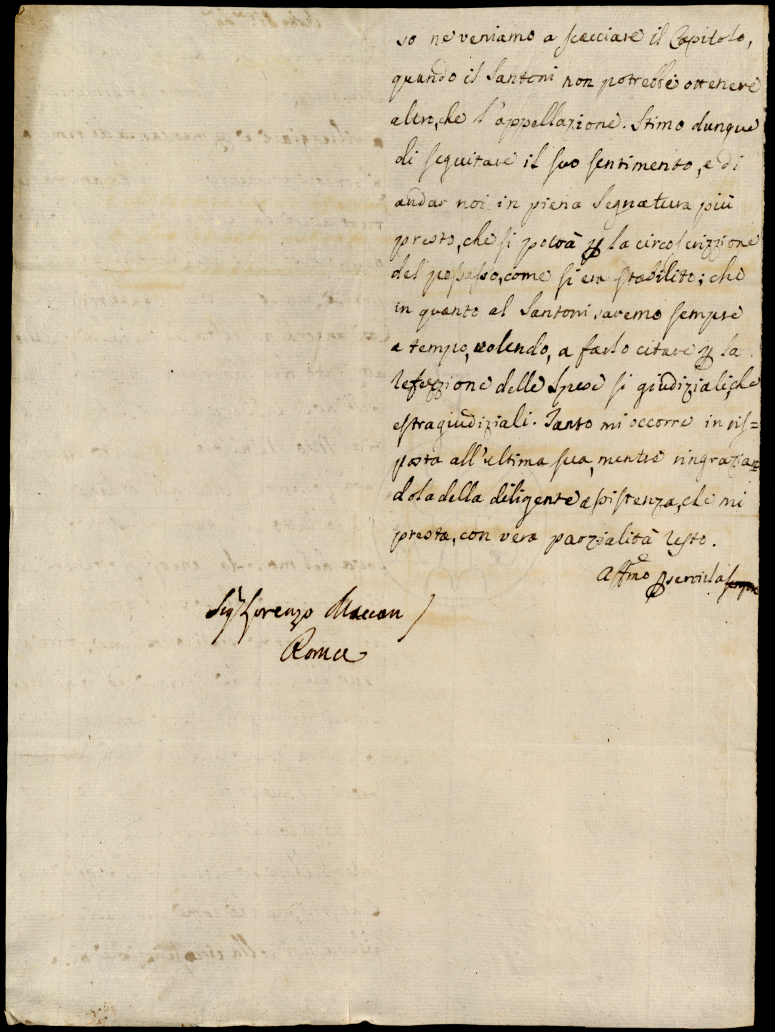 so ne veniamo a scacciare il Capitolo,
quando il Santoni non potrebbe ottenere
altro, che l'appellazione. Stimo dunque
di seguitare il suo sentimento, e di
andar noi in piena Segnatura più
presto, che si potrà ꝑ la circoscrizzione
del possesso, come si era stabilito; che
in quanto al Santoni saremo sempre
a tempo, volendo, a farlo citare ꝑ la
refezzione delle spese si giudiziali, che
estragiudiziali. Tanto mi occorre in ris=
posta all'ultima sua, mentre ringrazian=
dola della diligente assistenza, che mi
presta, con vera parzialità resto.
Affmo ꝑ servirla
Sigr Lorenzo
Roma